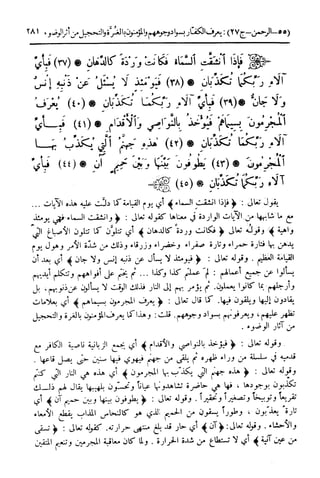 (٥٥–الرحمن–ج٢٧): يعرف الكفار بسواد وجوههم والمؤمنون بالغرة والتحجيل من أثر الوضوء ٢٨١
فإذا انشقت السماء فكانت وردة كالدهان * (٣٧) فبأي
آلاء ربكما تكذبان * (٣٨) فيومئذ لا يسئل عن ذنبه إنس
ولا جان * (٣٩) فبأي آلاء ربكما تكذبان * (٤٠) يعرف
المجرمون بسيماهم فيؤخذ بالنواصي والأقدام * (٤١) فبأي
آلاء ربكما تكذبان * (٤٢) هذه جهنم التي يكذب بها
المجرمون * (٤٣) يطوفون بينها وبين حميم آن * (٤٤) فبأي
آلاء ربكما تكذبان * (٤٥)
يقول تعالى : ﴿ فإذا انشقت السماء ﴾ أي يوم القيامة كما دلت عليه هذه الآيات ...
مع ما شابهها من الآيات الواردة في معناها كقوله تعالى : ﴿ وانشقت السماء فهي يومئذ
واهية ﴾ وقوله تعالى ﴿ فكانت وردة كالدهان ﴾ أي تتلون كما تتلون الأصباغ التي
يدهن بها فتارة حمراء وتارة صفراء وخضراء وزرقاء وذلك من شدة الأمر وهول يوم
القيامة العظيم . وقوله تعالى : ﴿ فيومئذ لا يسأل عن ذنبه إنس ولا جان ﴾ أي بعد أن
يسألوا عن جميع أعمالهم : لم عملتم كذا وكذا ... ثم يختم على أفواههم وتتكلم أيديهم
وأرجلهم بما كانوا يعملون. ثم يؤمر بهم إلى النار فذلك الوقت لا يسألون عن ذنوبهم، بل
يقادون إليها ويلقون فيها. كما قال تعالى : ﴿ يعرف المجرمون بسيماهم ﴾ أي بعلامات
تظهر عليهم، ويعرفونهم بسواد وجوههم. قلت : وهذا كما يعرف المؤمنون بالغرة والتحجيل
من آثار الوضوء .
وقوله تعالى : ﴿ فيؤخذ بالنواصي والأقدام ﴾ أي يجمع الزبانية ناصية الكافر مع
قدميه في سلسلة من وراء ظهره ثم يلقى من جهنم فيهوي فيها سنين حتى يصل قاعها .
وقوله تعالى : ﴿ هذه جهنم التي يكذب بها المجرمون ﴾ أي هذه هي النار التي كنتم
تكذبون بوجودها ، فها هي حاضرة تشاهدونها عياناً وتحسون بلهيبها يقال لهم ذلك
تقريعاً وتوبيخاً وتصغيراً وتحقيراً . وقوله تعالى : ﴿ يطوفون بينها وبين حميم آن ﴾ أي
تارة يعذبون ، وطوراً يسقون من الحميم الذي هو كالنحاس المذاب يقطع الأمعاء
والأحشاء . وقوله تعالى: ﴿ آن ﴾ أي حار قد بلغ منتهى حرارته. كقوله تعالى : ﴿ تسقى
من عين آنية ﴾ أي لا تستطاع من شدة الحرارة . ولما كان معاقبة المجرمين وتنعيم المتقين